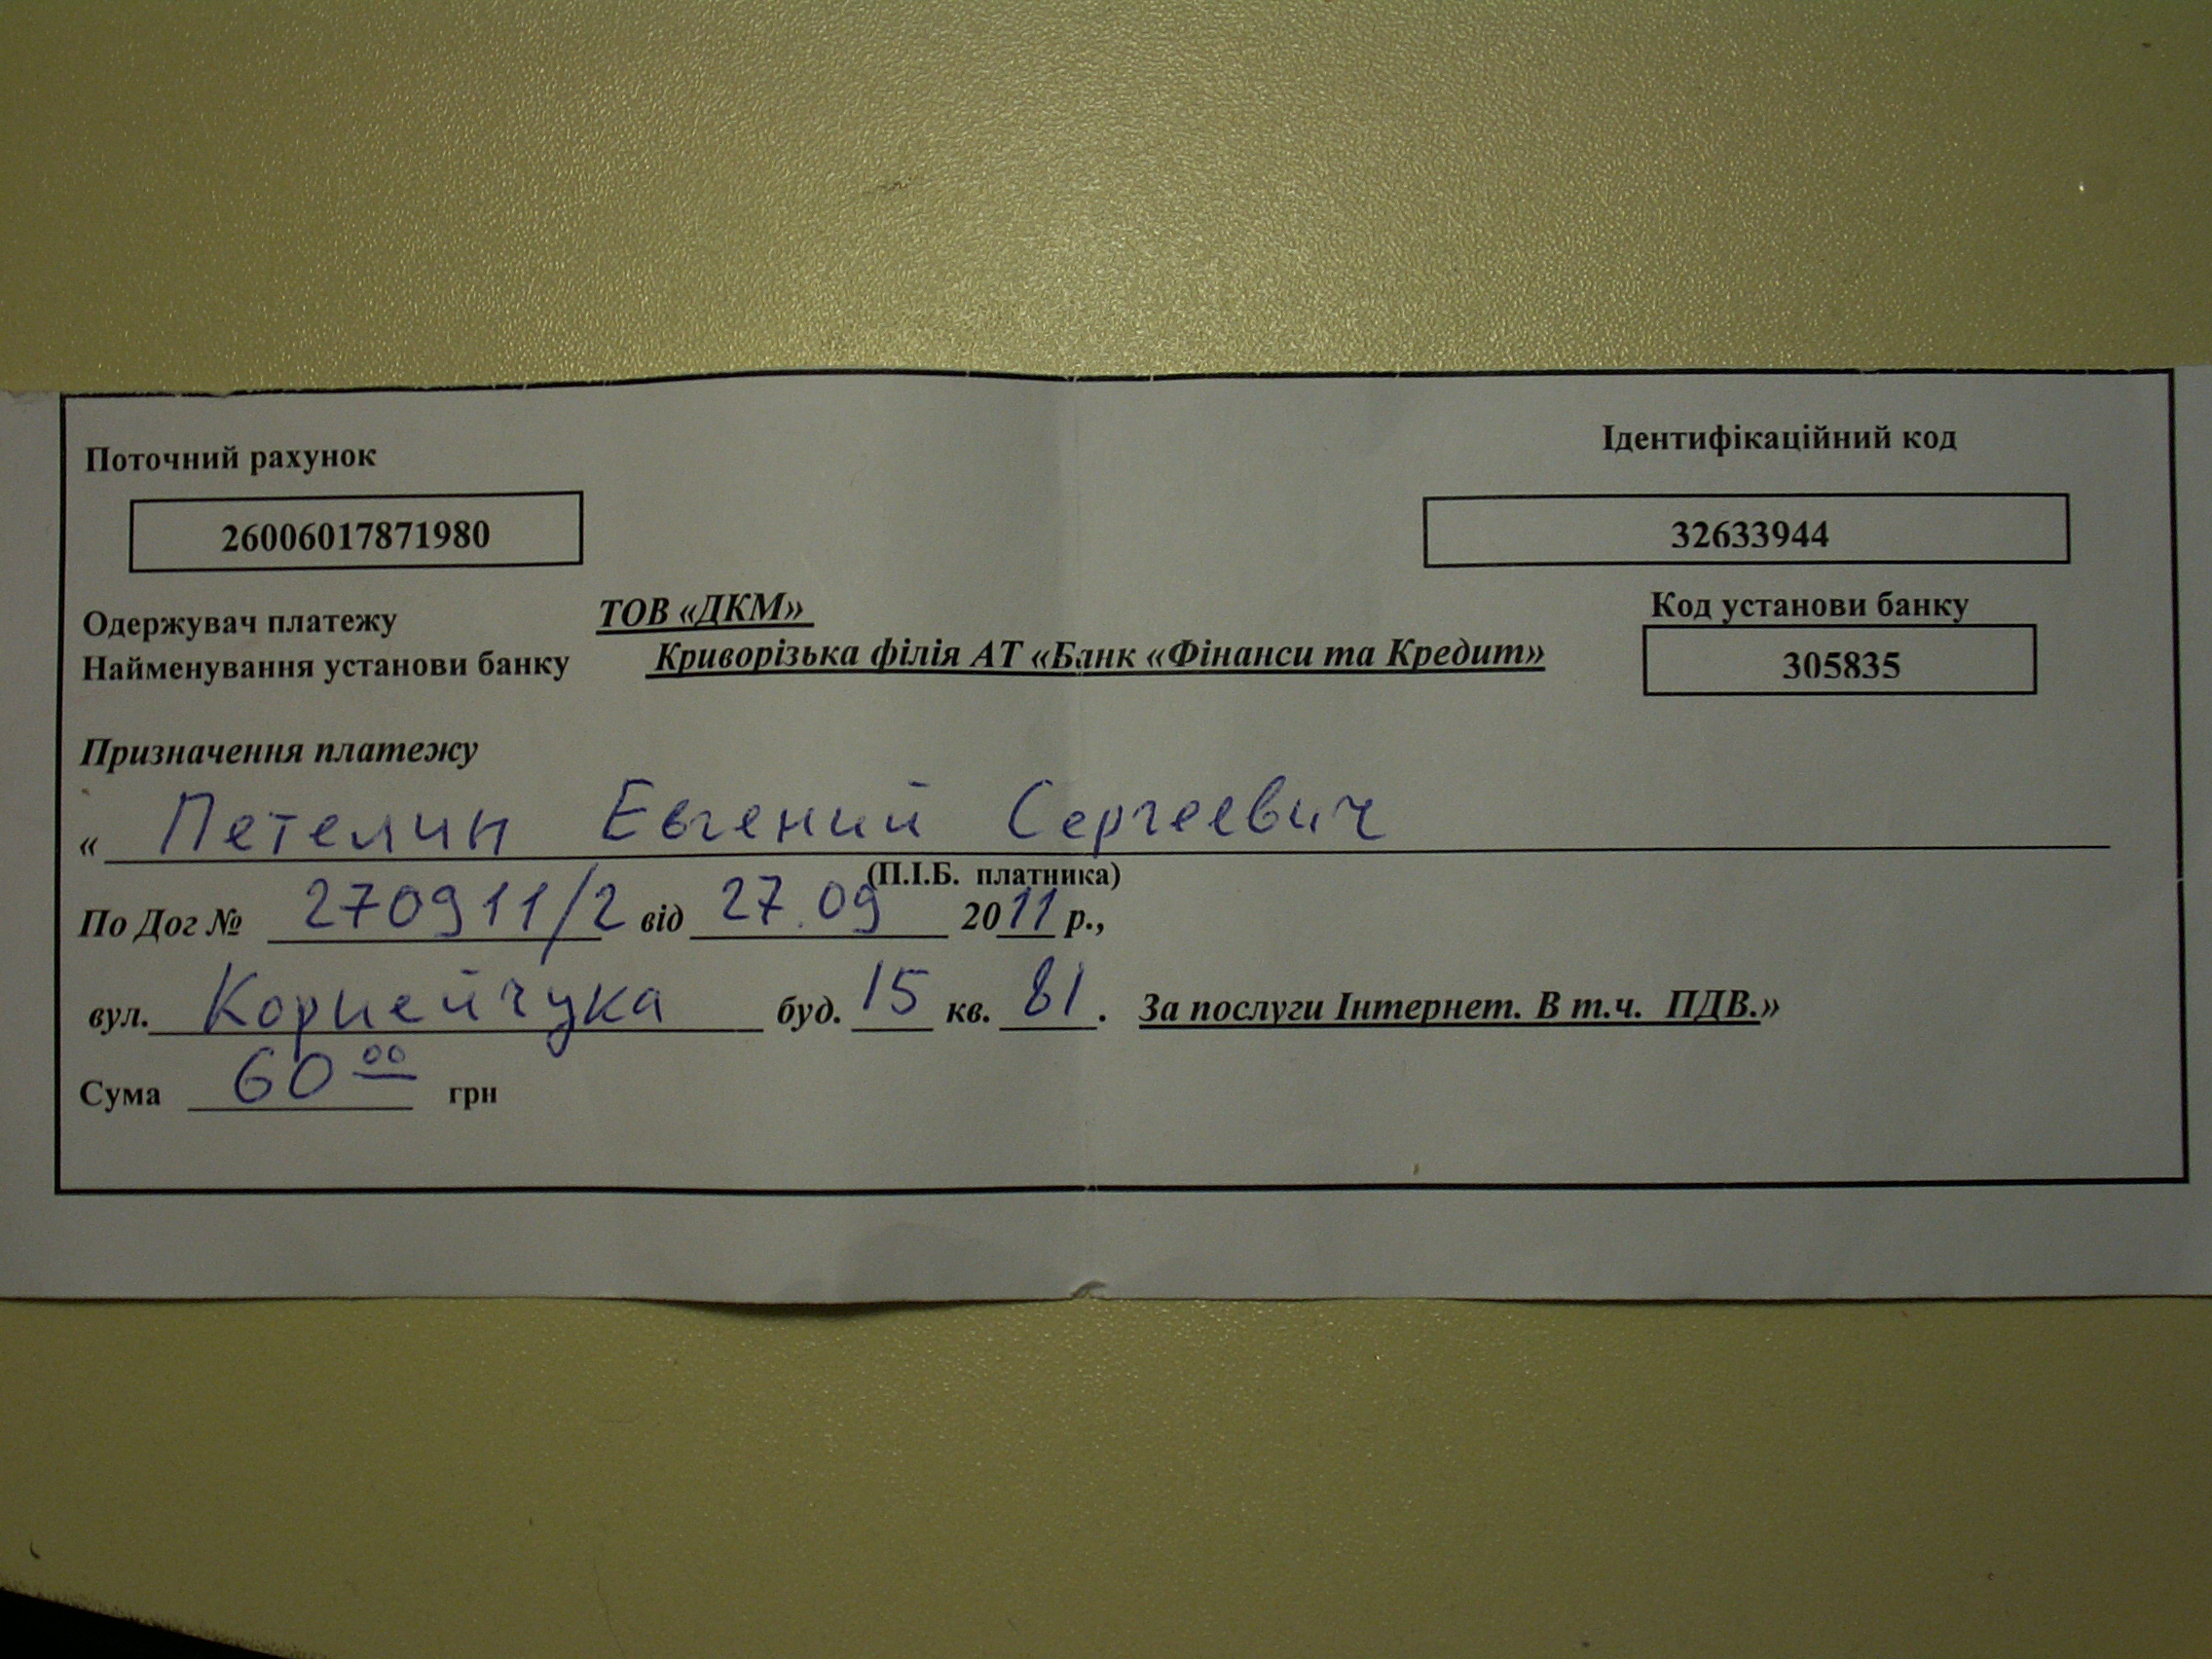 Поточний рахунок
Ідентифікаційний код
26006017871980
32633944
Одержувач платежу ТОВ «ДКМ»
Код установи банку
Найменування установи банку Криворізька філія АТ «Банк «Фінанси та Кредит»
305835
Призначення платежу
« Петелин Евгений Сергеевич
(П.І.Б. платника)
По Дог № 270911/2 від 27.09 2011 р.,
вул. Корнейчука буд. 15 кв. 81. За послуги Інтернет. В т.ч. ПДВ.»
Сума 60 00 грн